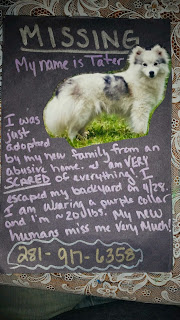 MISSING
My name is Tater
I was
just
adopted
by my new family from an
abusive home. I am VERY
SCARED of everything! I
escaped my backyard on 4/28.
I am wearing a purple collar
and I'm ~20lbs. My new
humans miss me very Much!
281-917-6358